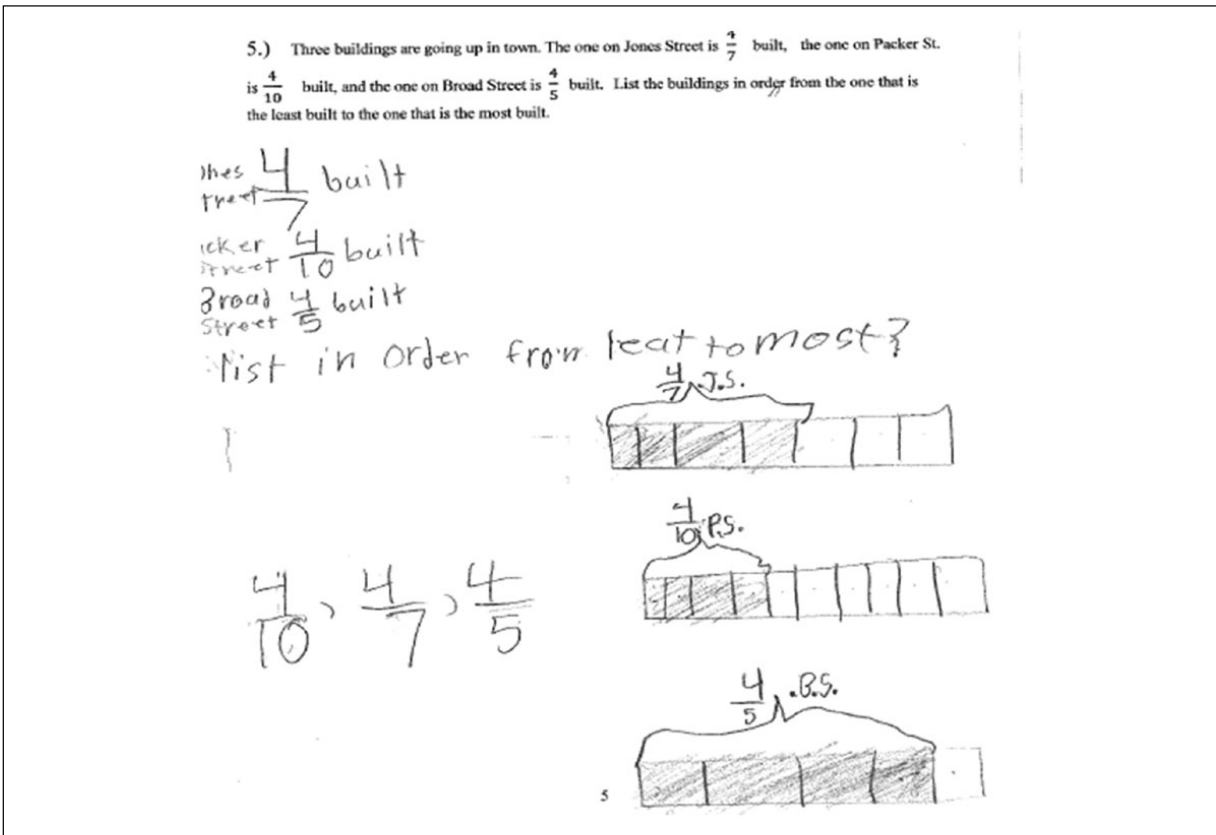 5.) Three buildings are going up in town. The one on Jones Street is 4/7 built, the one on Packer St.
is 4/10 built, and the one on Broad Street is 4/5 built. List the buildings in order from the one that is
the least built to the one that is the most built.
ones 4/7 built
treet
cker 4/10 built
Street
Broad 4/5 built
Street
list in order from leat to most?
4/7 J.S.
4/10 P.S.
4/10, 4/7, 4/5
4/5 .B.S.
5